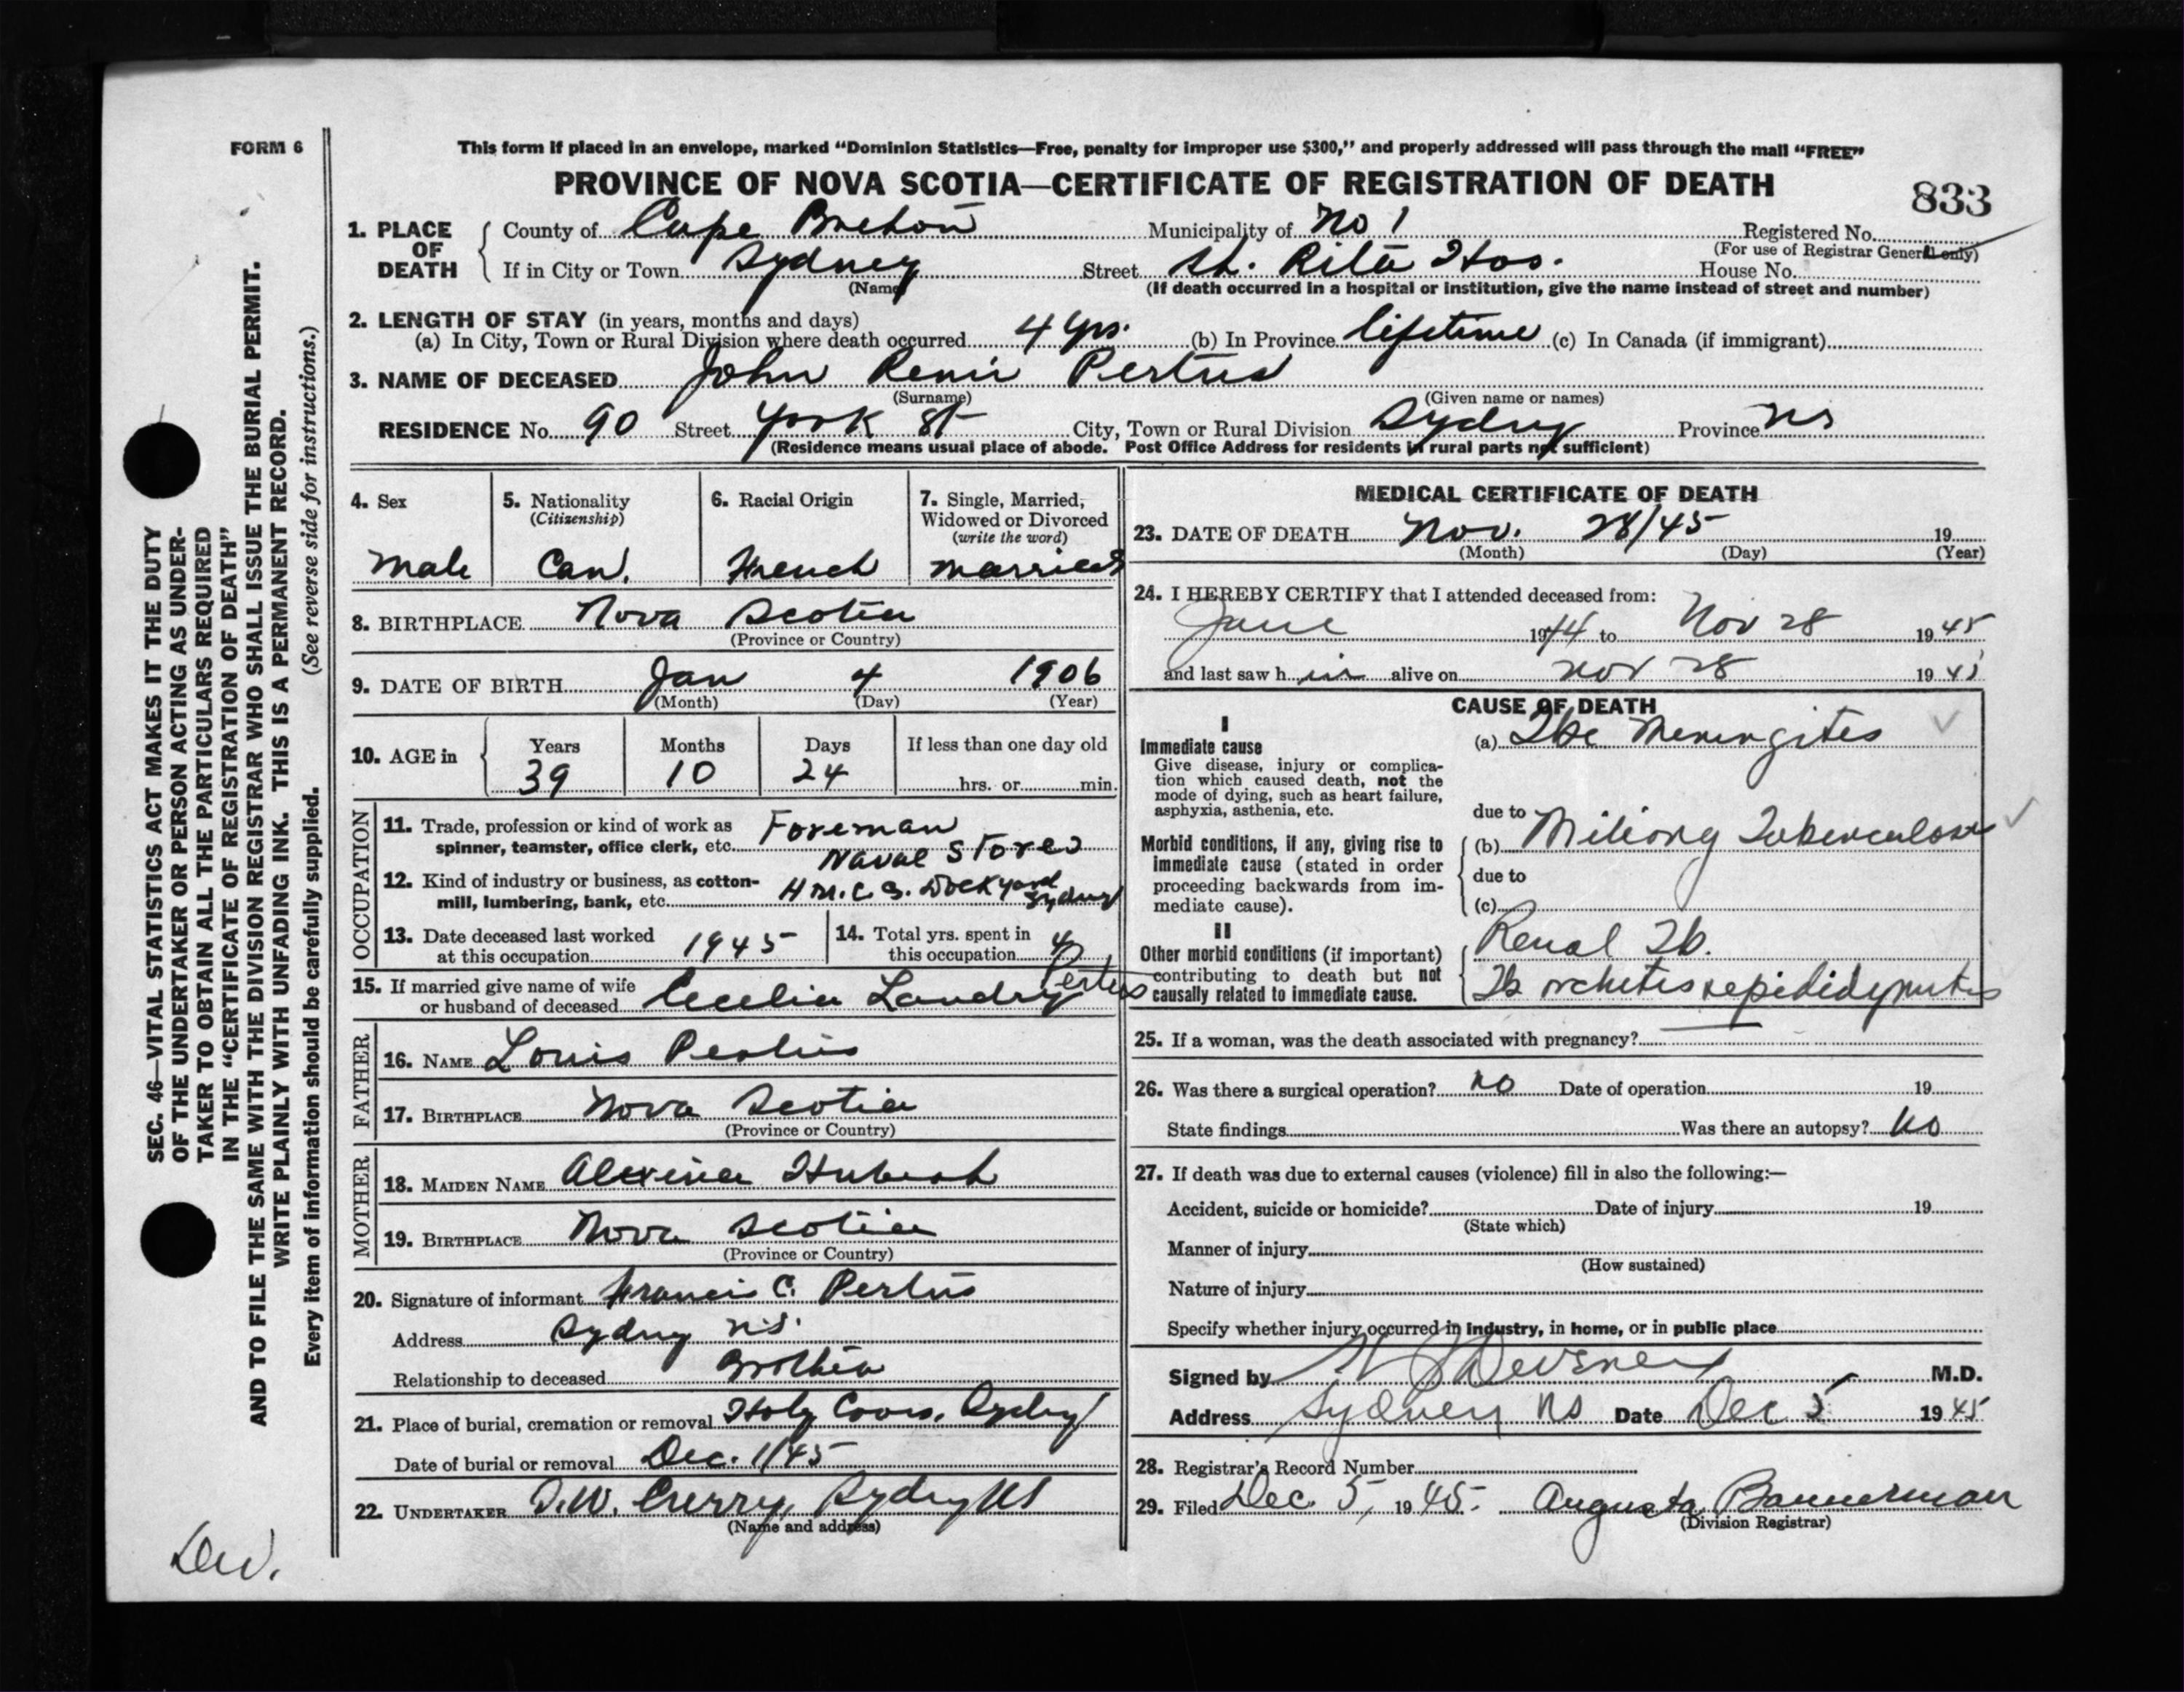 FORM 6
This form if placed in an envelope, marked "Dominion Statistics—Free, penalty for improper use $300," and properly addressed will pass through the mail "FREE"
PROVINCE OF NOVA SCOTIA—CERTIFICATE OF REGISTRATION OF DEATH
833
1. PLACE OF DEATH
County of Cape Breton Municipality of No 1 Registered No.
(For use of Registrar General only)
If in City or Town Sydney Street St. Rita Hos. House No.
(Name) (If death occurred in a hospital or institution, give the name instead of street and number)
2. LENGTH OF STAY (in years, months and days)
(a) In City, Town or Rural Division where death occurred 4 yrs. (b) In Province lifetime (c) In Canada (if immigrant)
3. NAME OF DECEASED John Remi Pertus
(Surname) (Given name or names)
RESIDENCE No. 90 Street York St City, Town or Rural Division Sydney Province NS
(Residence means usual place of abode. Post Office Address for residents in rural parts not sufficient)
4. Sex
Male
5. Nationality
(Citizenship)
Can.
6. Racial Origin
French
7. Single, Married,
Widowed or Divorced
(write the word)
Married
8. BIRTHPLACE Nova Scotia
(Province or Country)
9. DATE OF BIRTH Jan 4 1906
(Month) (Day) (Year)
10. AGE in
Years Months Days If less than one day old
39 10 24 hrs. or min.
OCCUPATION
11. Trade, profession or kind of work as Foreman
spinner, teamster, office clerk, etc. Naval Stores
12. Kind of industry or business, as cotton- H.M.C.S. Dockyard
mill, lumbering, bank, etc. Sydney
13. Date deceased last worked
at this occupation 1945
14. Total yrs. spent in
this occupation 4
15. If married give name of wife
or husband of deceased Cecelia Landry Pertus
FATHER
16. NAME Louis Pertus
17. BIRTHPLACE Nova Scotia
(Province or Country)
MOTHER
18. MAIDEN NAME Alexina
19. BIRTHPLACE Nova Scotia
(Province or Country)
20. Signature of informant Francis C. Pertus
Address Sydney N.S.
Relationship to deceased Brother
21. Place of burial, cremation or removal Holy Cross, Sydney
Date of burial or removal Dec. 1/45
22. UNDERTAKER Curry, Sydney NS
(Name and address)
MEDICAL CERTIFICATE OF DEATH
23. DATE OF DEATH Nov. 28/45 19
(Month) (Day) (Year)
24. I HEREBY CERTIFY that I attended deceased from:
June 1944 to Nov 28 1945
and last saw him alive on Nov 28 1945
CAUSE OF DEATH
I
Immediate cause
Give disease, injury or complica-
tion which caused death, not the
mode of dying, such as heart failure,
asphyxia, asthenia, etc.
(a) Tbc Meningites
due to
Morbid conditions, if any, giving rise to
immediate cause (stated in order
proceeding backwards from im-
mediate cause).
(b) Miliary Tuberculosis
due to
(c)
II
Other morbid conditions (if important)
contributing to death but not
causally related to immediate cause.
Renal Tb.
Tb orchetis & epididymitis
25. If a woman, was the death associated with pregnancy?
26. Was there a surgical operation? no Date of operation 19
State findings Was there an autopsy? no
27. If death was due to external causes (violence) fill in also the following:—
Accident, suicide or homicide? Date of injury 19
(State which)
Manner of injury
(How sustained)
Nature of injury
Specify whether injury occurred in industry, in home, or in public place
Signed by M.D.
Address Sydney NS Date Dec 5 1945
28. Registrar's Record Number
29. Filed Dec. 5, 1945. Augusta Bannerman
(Division Registrar)
SEC. 46—VITAL STATISTICS ACT MAKES IT THE DUTY
OF THE UNDERTAKER OR PERSON ACTING AS UNDER-
TAKER TO OBTAIN ALL THE PARTICULARS REQUIRED
IN THE "CERTIFICATE OF REGISTRATION OF DEATH"
AND TO FILE THE SAME WITH THE DIVISION REGISTRAR WHO SHALL ISSUE THE BURIAL PERMIT.
WRITE PLAINLY WITH UNFADING INK. THIS IS A PERMANENT RECORD.
Every item of information should be carefully supplied. (See reverse side for instructions.)